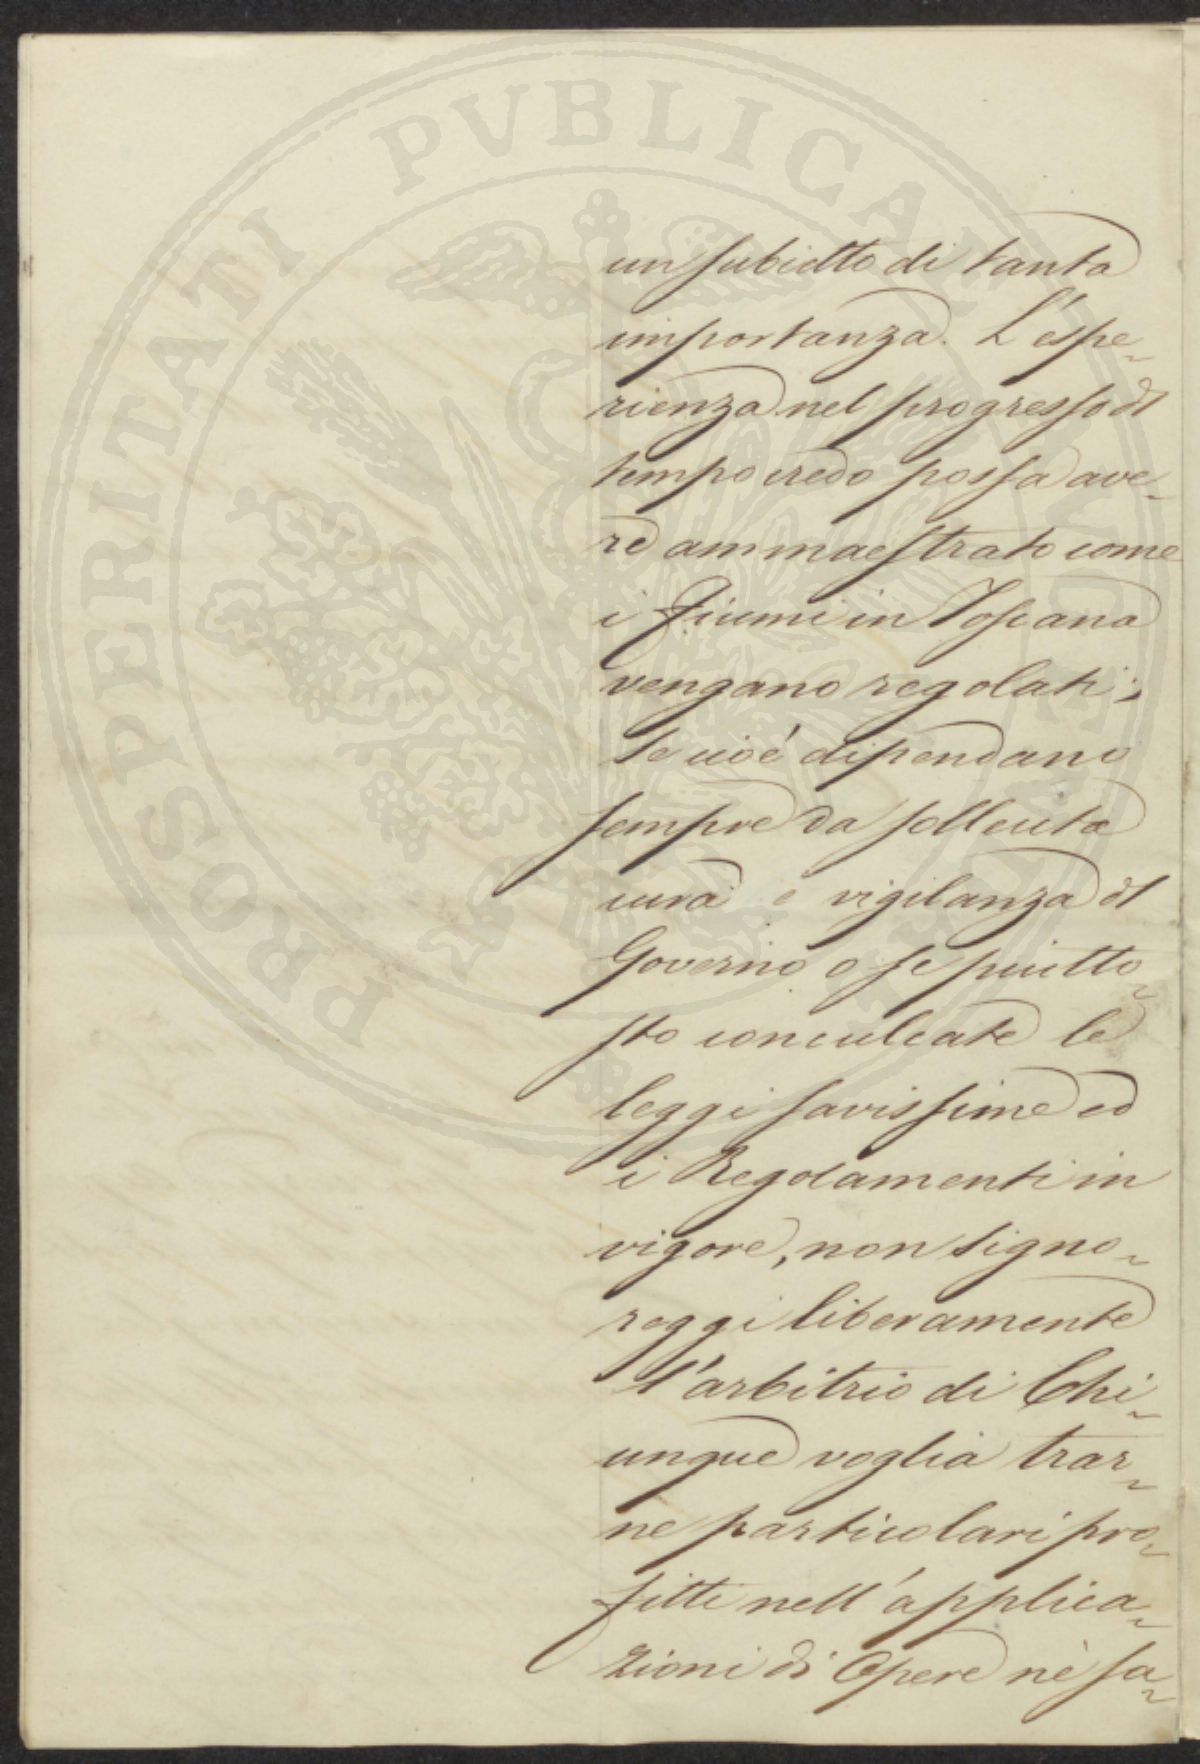 PROSPERITATI PVBLICAE
un subietto di tanta
importanza. L'espe-
rienza nel progresso dl
tempo credo possa ave-
re ammaestrato come
i Fiumi in Toscana
vengano regolati;
se cioè dipendano
sempre da sollecita
cura e vigilanza dl
Governo o se piutto-
sto conculcate le
leggi savissime ed
i Regolamenti in
vigore, non signo-
reggi liberamente
l'arbitrio di Chi-
unque voglia trar-
ne particolari pro-
fitti nell'applica-
zioni di Opere nè fa-